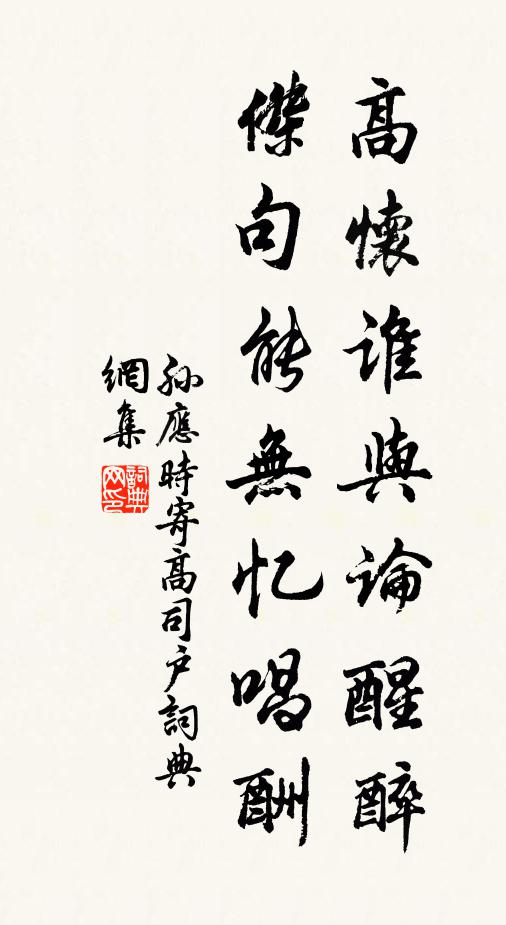 高懷誰與論醒醉
傑句能無忆唱酬
孫應時寄高司户詞典
網集
詞典網印